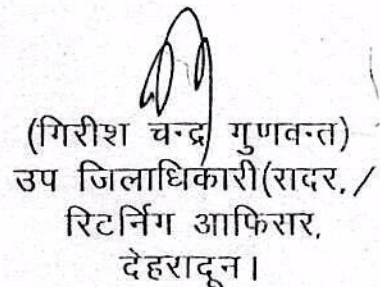 (गिरीश चन्द्र गुणवन्त)
उप जिलाधिकारी(रादर,/
रिटर्निग आफिरार,
देहरादून।